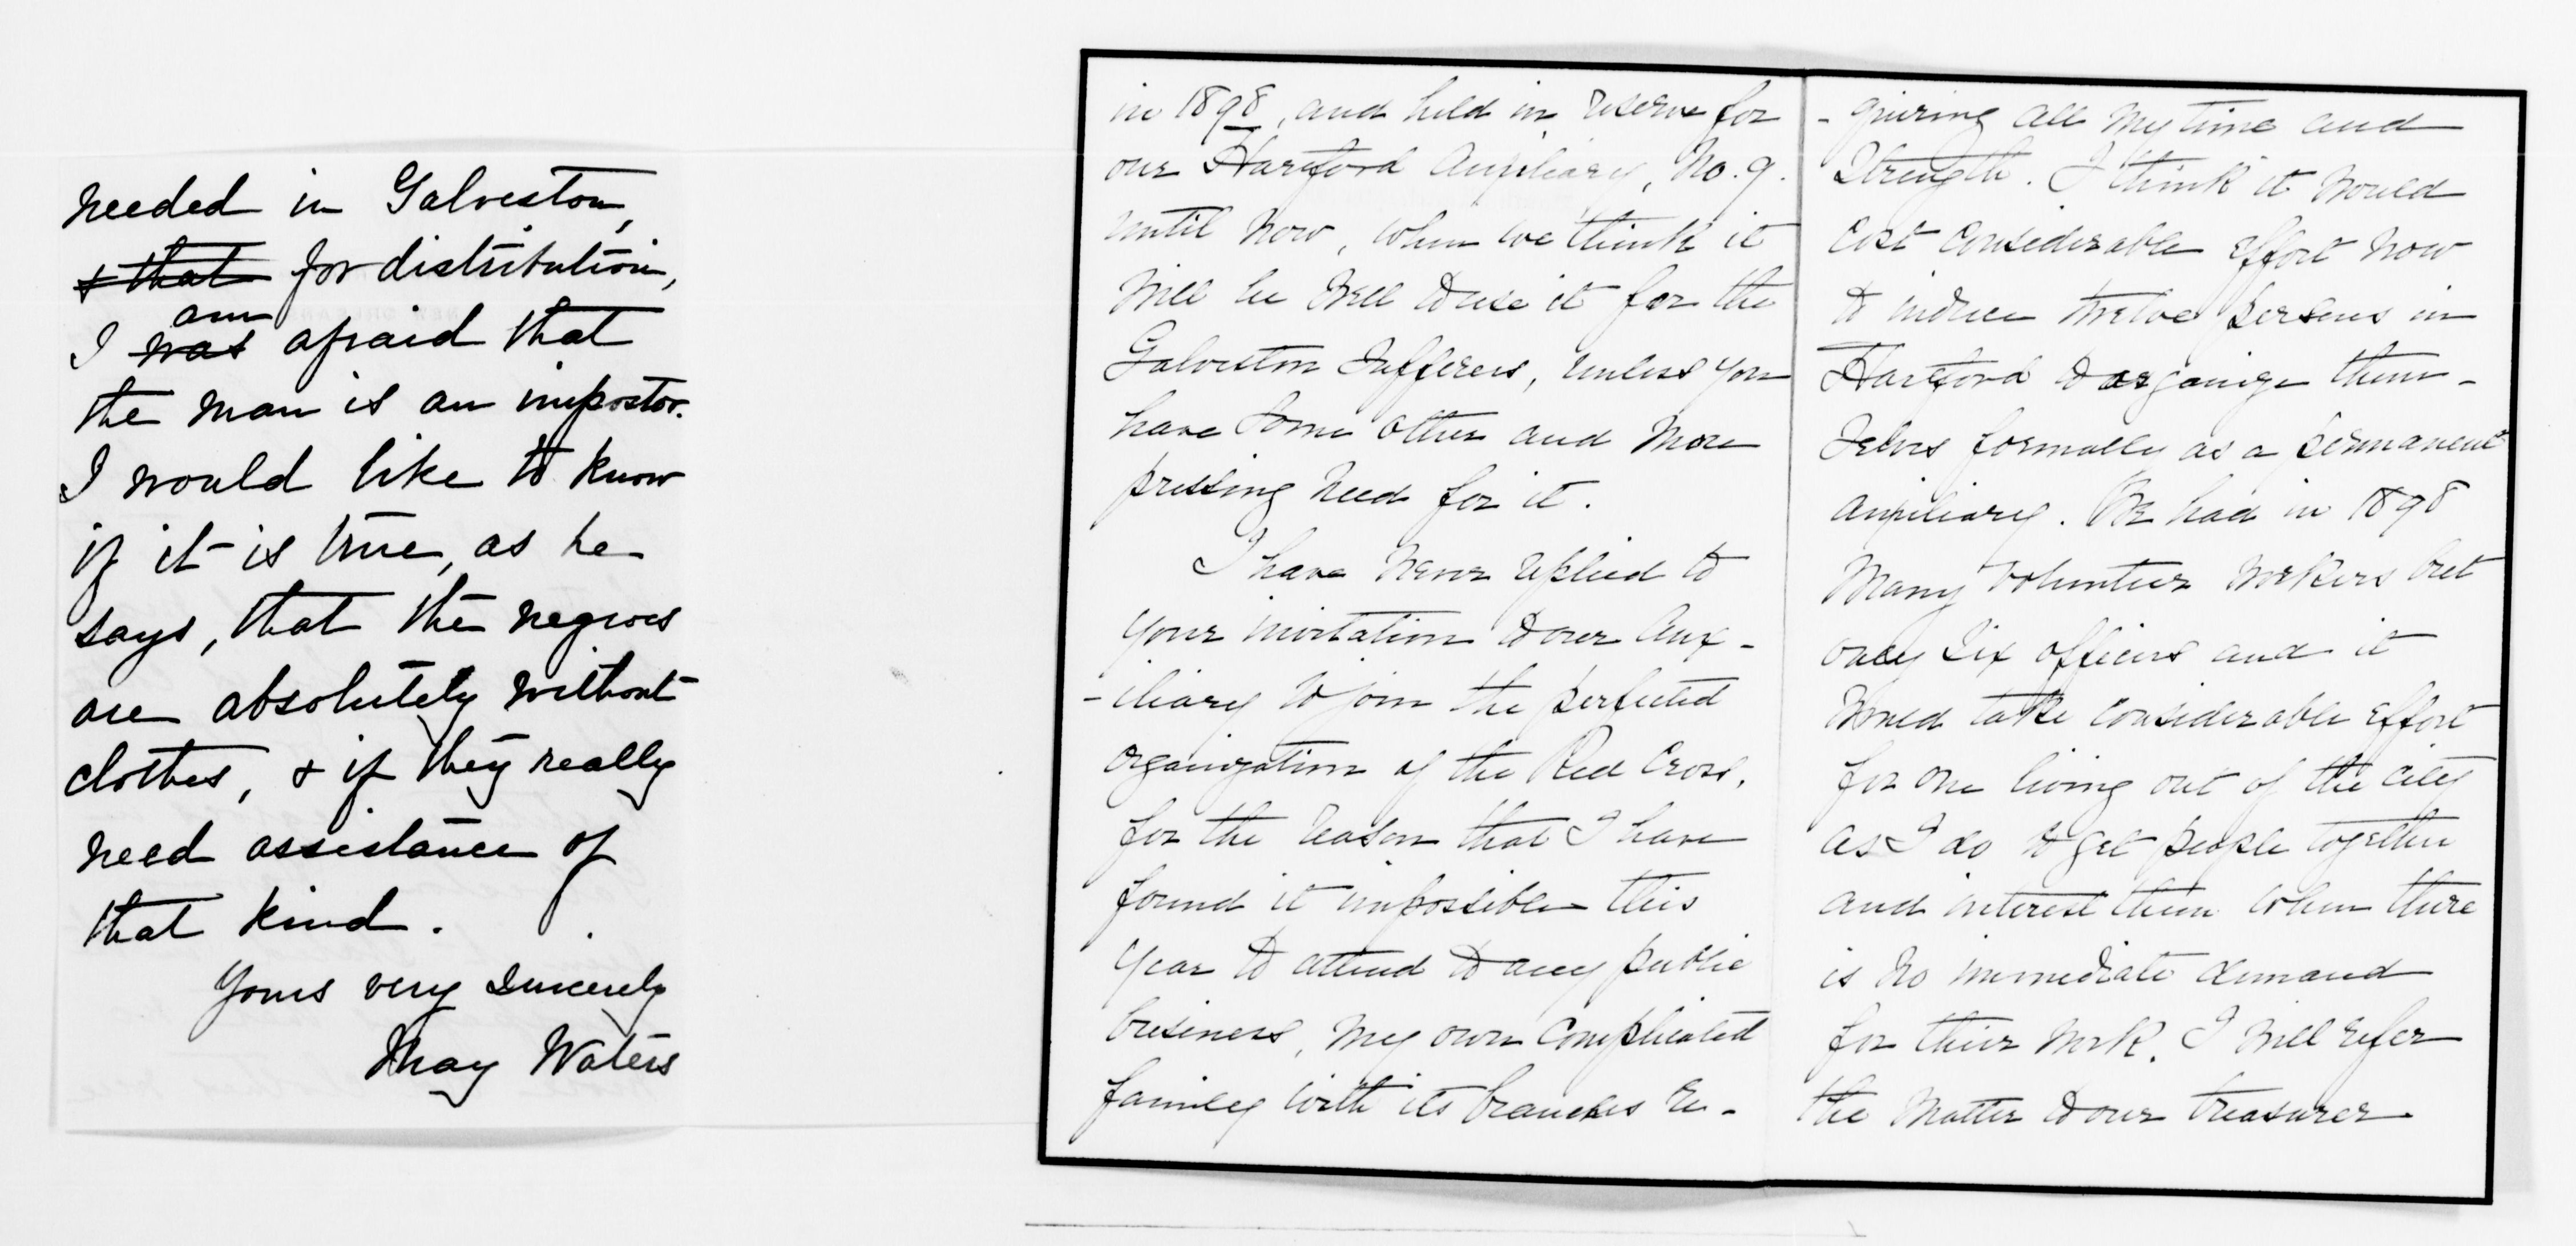 needed in Galveston,
& that for distribution,
am
I was afraid that
the man is an impostor.
I would like to know
if it is true, as he
says, that the negroes
are absolutely without
clothes, & if they really
need assistance of
that kind.
Yours very sincerely
May Waters
in 1898, and held in reserve for
our Hartford Auxiliary, No. 9.
until now, when we think it
will be well to use it for the
Galveston Sufferers, unless you
have some other and more
pressing need for it.
I have never replied to
your invitation to our Aux-
-iliary to join the perfected
organization of the Red Cross,
for the reason that I have
found it impossible this
year to attend to any public
business, my own complicated
family with its branches re-
-quiring all my time and
Strength. I think it would
cost considerable effort now
to induce twelve persons in
Hartford to organize them-
selves formally as a permanent
auxiliary. We had in 1898
many volunteer workers but
only six officers and it
would take considerable effort
for one living out of the city
as I do to get people together
and interest them when there
is no immediate demand
for their work. I will refer
the matter to our treasurer